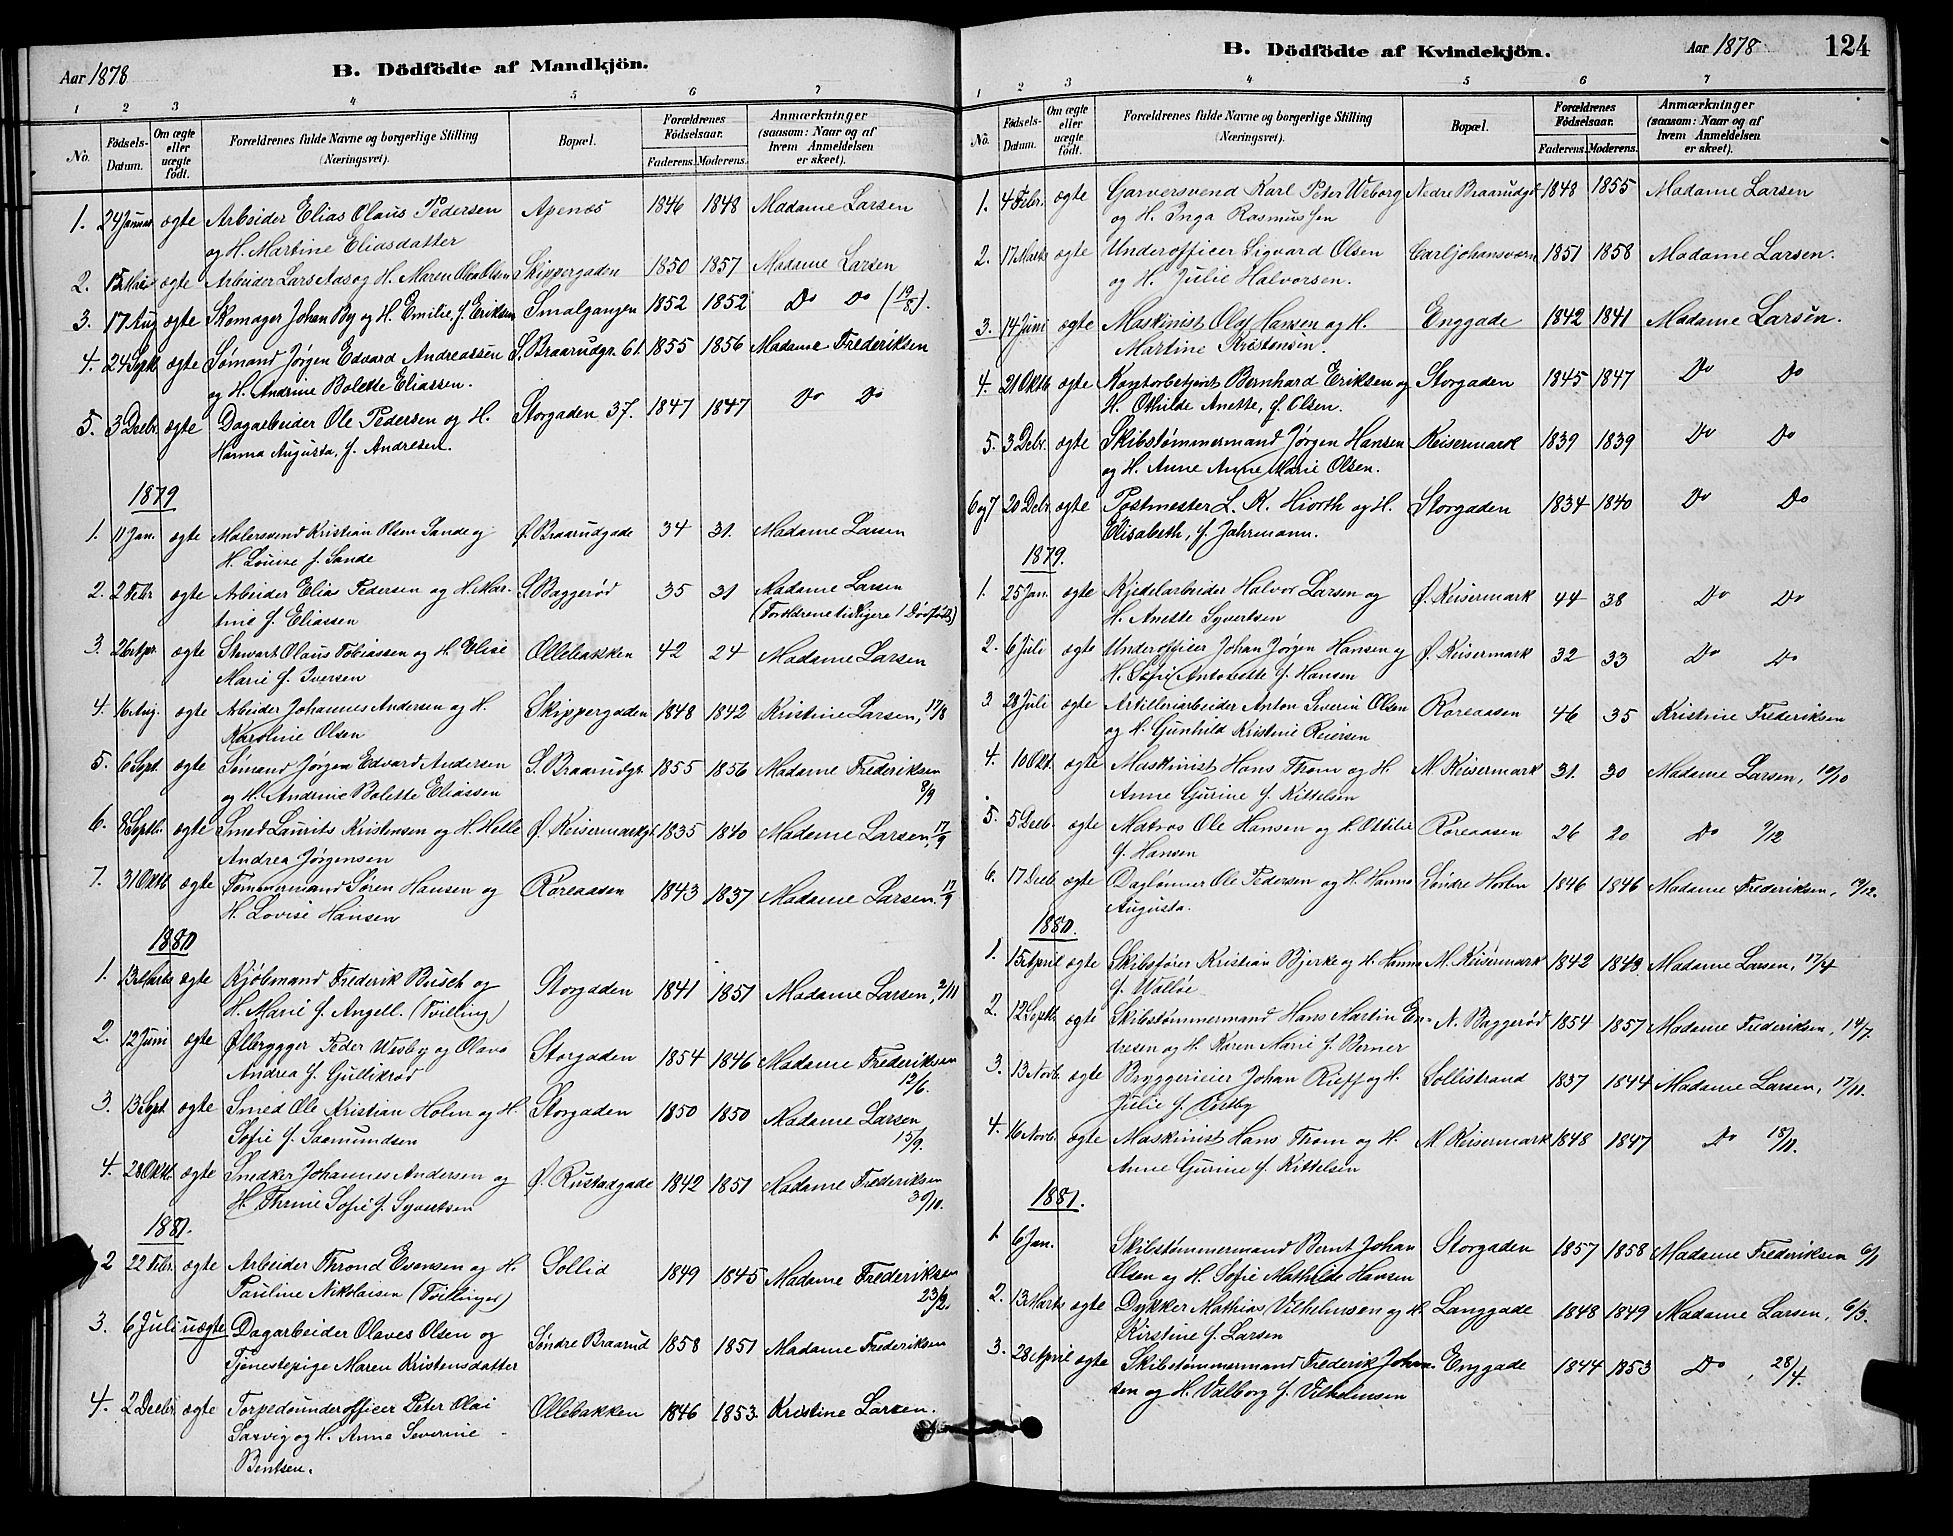 Aar 1878
B. Dödfödte af Mandkjön.
1 2 3 4 5 6 7
No. Födsels-Datum. Om ægte eller uægte födt. Forældrenes fulde Navne og borgerlige Stilling (Næringsvei). Bopæl. Forældrenes Födselsaar. Faderens. Moderens. Anmærkninger (saasom: Naar og af hvem Anmeldelsen er skeet).
1. 24 Januar ægte Arbeider Elias Olaus Pedersen Apenæs 1846 1848 Madame Larsen
og H. Martine Eliasdatter
2. 15 Mai ægte Arbeider Lars Aas og H. Maren Olsen Skippergaden 1850 1857 Madame Larsen
3. 17 Aug ægte Skomager Johan By og H. Emilie, f. Eriksen Smalgangen 1852 1852 Do Do (19/8).
4. 24 Sept ægte Sømand Jørgen Edvard Andreassen S. Braarudgr. 61. 1855 1856 Madame Frederiksen
og H. Andrine Bolette Eliassen.
5. 3 Decbr. ægte Dagarbeider Ole Pedersen og H. Storgaden 37. 1847 1847 Do Do
Hanna Augusta, f. Andresen.
1879
1. 11 Jan. ægte Malersvend Kristian Olsen Sande og Ø. Braarudgade 34 31. Madame Larsen
H. Louise f. Sande
2. 2 Febr ægte Arbeider Elias Pedersen og H. Mar- S. Baggerød 35 31 Madame Larsen
tine f. Eliassen (Forældrene tidligere 1 Dødfødt)
3. 26 Apr. ægte Stewart Olaus Tobiassen og H. Elise Ollebakken 42 24 Madame Larsen
Marie f. Iversen
4. 16 Aug. ægte Arbeider Johannes Andersen og H. Skippergaden 1848 1842 Kristine Larsen, 17/8
Karoline Olsen
5. 6 Sept. ægte Sømand Jørgen Edvard Andersen S. Braarudgr. 1855 1856 Madame Frederiksen
og H. Andrine Bolette Eliassen 8/9
6. 8 Septb. ægte Smed Laurits Kristensen og H. Helle Ø. Keisermarkgt. 1835 1840 Madame Larsen, 17/9
Andrea Jørgensen
7. 31 Oktb ægte Tømmermand Søren Hansen og Røreaasen 1843 1837 Madame Larsen, 17/9
H. Lovise Hansen
1880
1. 13 Marts ægte Kjøbmand Frederik Busch og Storgaden 1841 1851 Madame Larsen, 2/11
H. Marie f. Angell. (Tvilling)
2. 12 Juni ægte Ølbrygger Peder Wesby og Olava Storgaden 1854 1846 Madame Frederiksen
Andrea f. Gullikrød 12/6.
3. 13 Sept. ægte Smed Ole Kristian Holm og H. Storgaden 1850 1850 Madame Larsen
Sofie f. Saamundsen 15/9.
4. 28 Oktb. ægte Snedker Johannes Andersen og Ø. Rustadgade 1842 1851 Madame Frederiksen
H. Thrine Sofie f. Syvertsen 30/10.
1881.
2 22 Febr. ægte Arbeider Thrond Evensen og H. Sollid 1849 1845 Madame Frederiksen
Pauline Nikolaisen (Tvillinger) 23/2.
3. 6 Juli uægte Dagarbeider Olaves Olsen og Søndre Braarud 1858 1851 Madame Frederiksen
Tjenestepige Maren Kristensdatter
4. 2 Decbr. ægte Torpedounderofficer Peter Olai Ollebakken 1846 1853 Kristine Larsen.
og H. Anne Severine
Bentsen.
B. Dödfödte af Kvindekjön.
Aar 1878
124
1 2 3 4 5 6 7
No. Födsels-Datum. Om ægte eller uægte födt. Forældrenes fulde Navne og borgerlige Stilling (Næringsvei). Bopæl. Forældrenes Födselsaar. Faderens. Moderens. Anmærkninger (saasom: Naar og af hvem Anmeldelsen er skeet).
1. 4 Febr. ægte Garversvend Karl Peter Weborg Nedre Braarudgt 1848 1855 Madame Larsen
og H. Inga Rasmussen
2. 17 Marts ægte Underofficer Sigvard Olsen Carljohansværn 1851 1858 Madame Larsen.
og H. Julie Halvorsen.
3. 14 Juni ægte Maskinist Olaf Hansen og H. Enggade 1842 1841 Madame Larsen.
Martine Kristensen.
4. 21 Oktb ægte Kontorbetjent Bernhard Eriksen og Storgaden 1845 1847 Do Do
H. Othilde Anette, f. Olsen.
5. 3 Debr. ægte Skibstømmermand Jørgen Hansen Keisermark 1839 1839 Do Do
og H. Anne Anne Marie Olsen.
6 og 7 20 Debr. ægte Postmester L. K. Hiorth og H. Storgaden 1834 1840 Do Do
Elisabeth, f. Jahrmann.
1879.
1. 25 Jan. ægte Kjedelarbeider Halvor Larsen og Ø. Keisermark 44 38 Do Do
H. Anette Syvertsen
2. 6 Juli ægte Underofficer Johan Jørgen Hansen og Ø. Keisermark 32 33 Do Do
H. Sofie Antonette f. Hansen
3. 28 Juli ægte Artilleriarbeider Anton Severin Olsen Røreaasen 46 35 Kristine Frederiksen
og H. Gunhild Kristine Reiersen
4. 10 Okt. ægte Maskinist Hans Thom og H. M. Keisermark 31. 30 Madame Larsen, 10/10
Anne Gurine f. Kittelsen
5. 5 Decb. ægte Matros Ole Hansen og H. Ottilie Røreaasen 26 20 Do 9/12
f. Hansen
6. 17 Decb. ægte Dagløнner Ole Pedersen og H. Hanna Søndre Horten 1846 1846 Madame Frederiksen, 19/12.
Augusta.
1880.
1. 15 April ægte Skibsfører Kristian Bjerke og H. Hanna M. Keisermark 1842 1848 Madame Larsen, 17/4
f. Walløe
2. 12 Septb. ægte Skibstømmermand Hans Martin En- N. Baggerød 1854 1857 Madame Frederiksen, 14/7.
dresen og H. Karen Marie f. Berner
3. 13 Novb. ægte Bryggerieier Johan Rieff og H. Sollistrand 1837 1844 Madame Larsen, 17/11.
Julie f.
4. 16 Novb. ægte Maskinist Hans Thom og H. M. Keisermark 1848 1847 Do 18/11.
Anne Gurine f. Kittelsen
1881.
1. 6 Jan. Skibstømmermand Bernt Johan Storgaden 1857 1858 Madame Frederiksen 6/1
Olsen og H. Sofie Mathilde Hansen
2. 13 Marts ægte Dykker Mathias Vilhelmsen og H. Langgade 1848 1849 Madame Larsen, 6/3.
Kirstine f. Larsen
3. 28 April ægte Skibstømmermand Frederik Johan- Enggade 1844 1853 Do, 28/4.
sen og H. Valborg f. Vilhelmsen